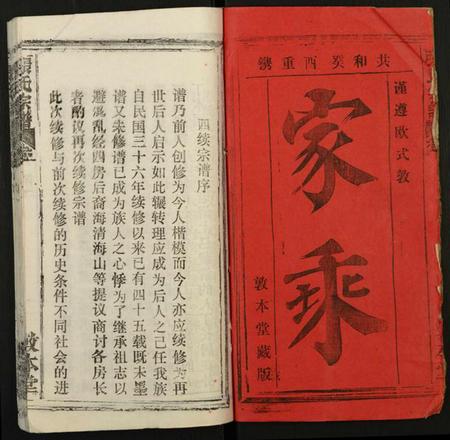 共和癸酉重镌
谨遵欧式敦
家乘
敦本堂藏版
四续宗谱序
谱乃前人创修为今人楷模而今人亦应续修为再
世后人启示如此辗转理应成为后人之己任我族
自民国三十六年续修以来已有四十五载既未墨
谱又未修谱已成为族人之心悸为了继承祖志以
避混乱经四房后裔海清海山等提议商讨各房长
者酌议再次续修宗谱
此次续修与前次续修的历史条件不同社会的进
張氏宗譜
敦本堂